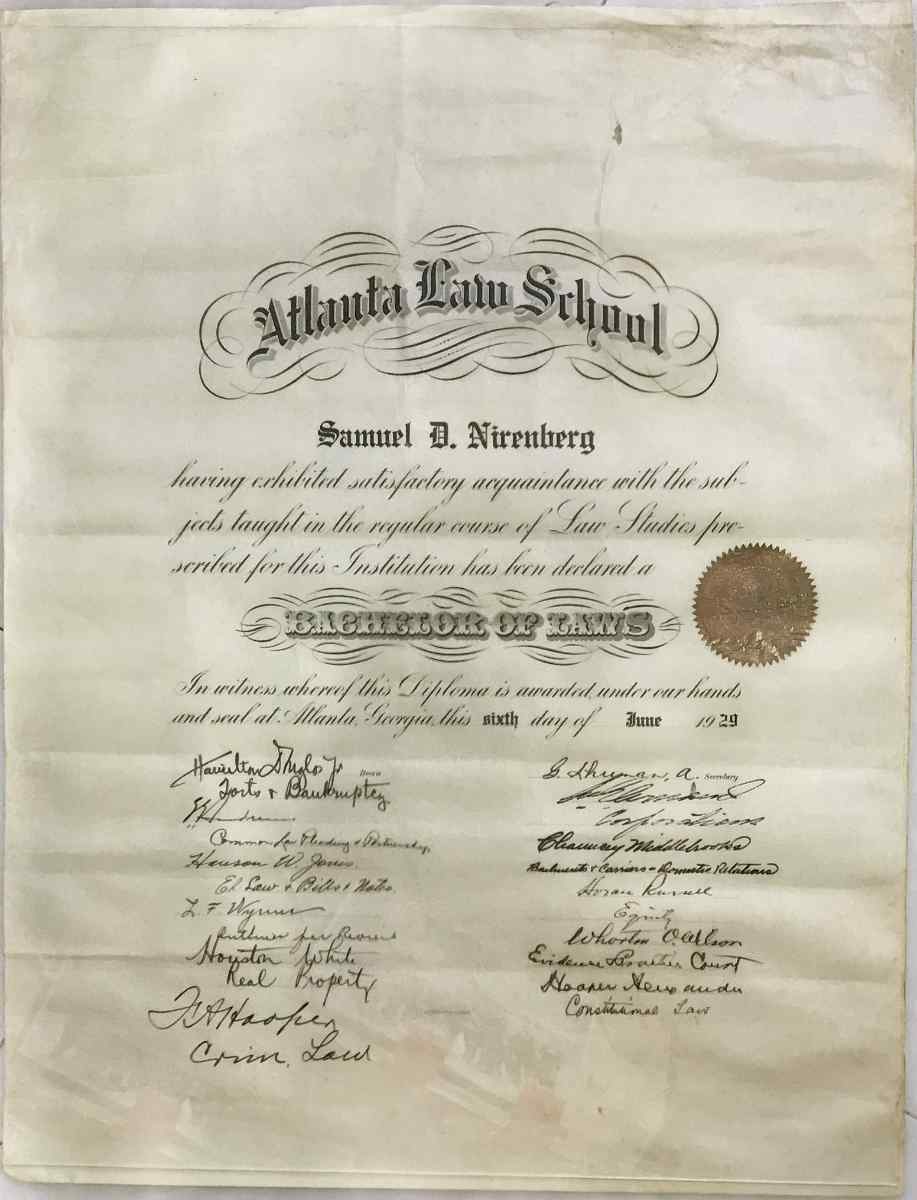 Atlanta Law School
Samuel D. Nirenberg
having exhibited satisfactory acquaintance with the sub-
jects taught in the regular course of Law Studies pre-
scribed for this Institution has been declared a
BACHELOR OF LAWS
In witness whereof this Diploma is awarded under our hands
and seal at Atlanta, Georgia, this sixth day of June 1929
Hamilton Jr Dean
Torts & Bankruptcy
Common Law Pleading & Partnership
W. Jones
Law & Bills & Notes
L. F.
Houston White
Real Property
Hooper
Crim. Law
A. Secretary
Corporations
Chauncey Middlebrooks
Bailments & Carriers & Domestic Relations
Russell
Equity
Wharton O. Wilson
Evidence Court
Hooper Alexander
Constitutional Law